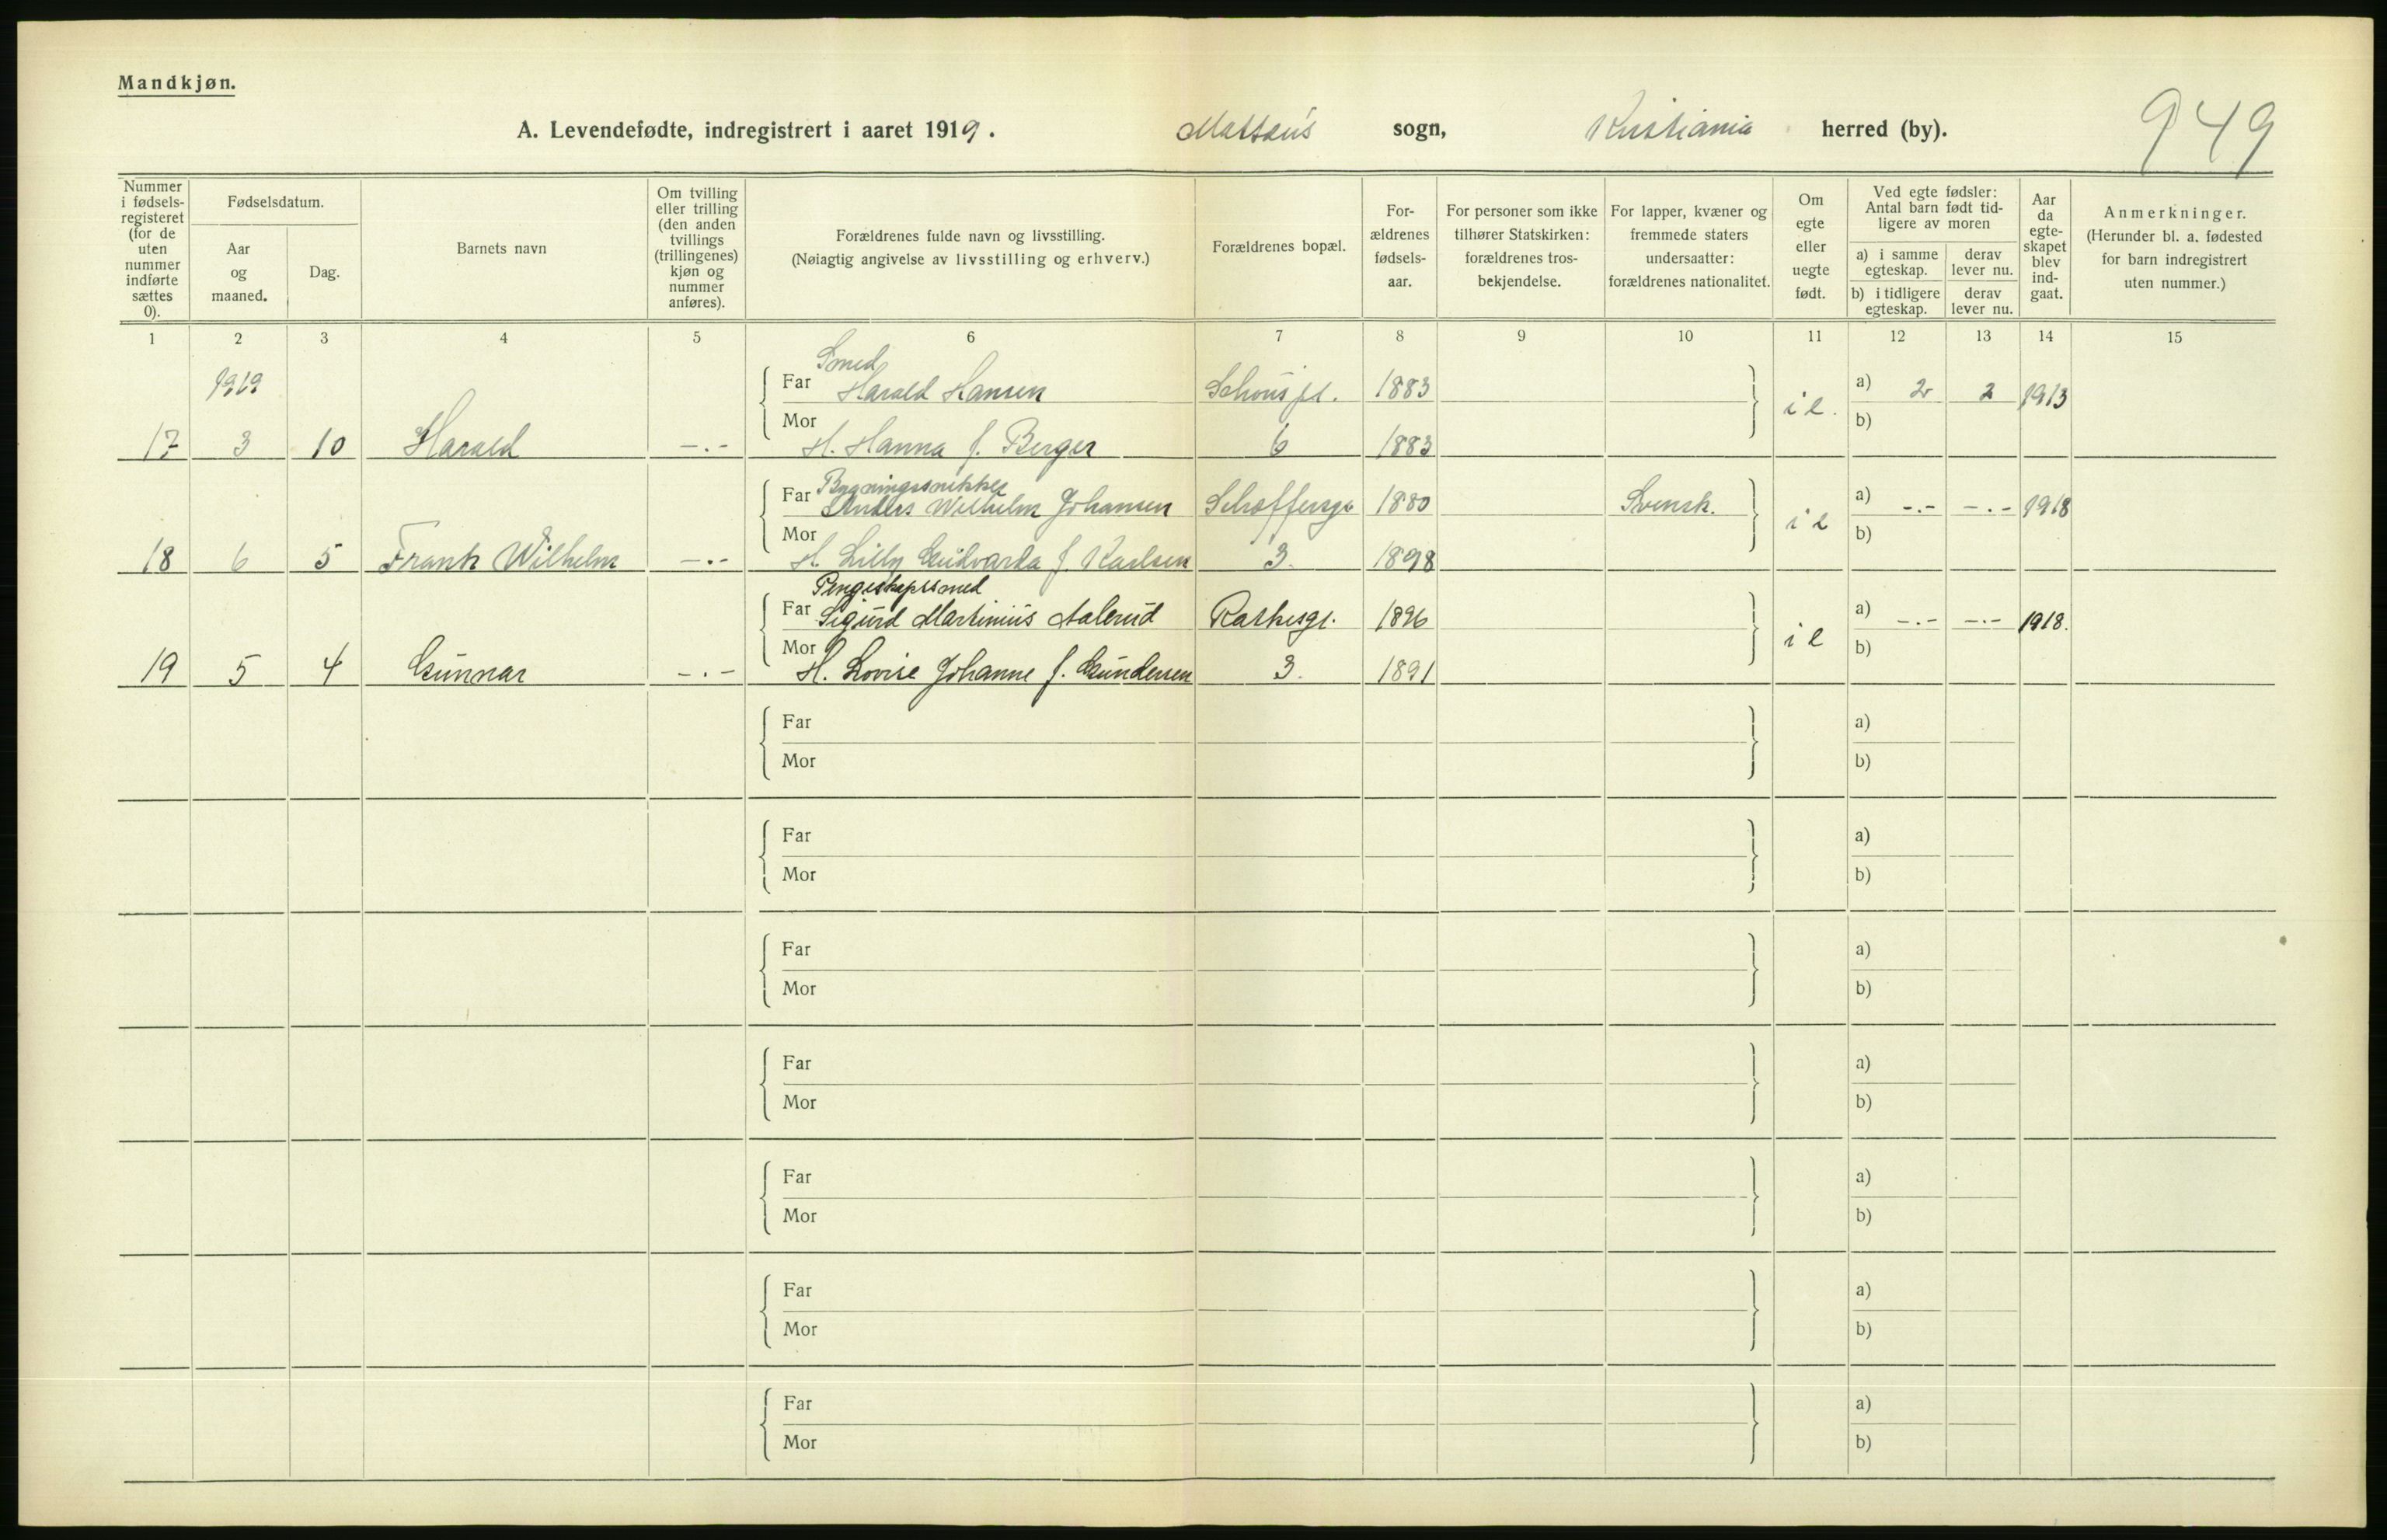 Mandkjøn.
A. Levendefødte, indregistrert i aaret 1919. Mattæus sogn, Kristiania herred (by). 949
Nummer i fødselsregisteret (for de uten nummer indførte sættes 0).
Fødselsdatum.
Aar og maaned.
Dag.
Barnets navn
Om tvilling eller trilling (den anden tvillings (trillingenes) kjøn og nummer anføres).
Forældrenes fulde navn og livsstilling.
(Nøiagtig angivelse av livsstilling og erhverv.)
Forældrenes bopæl.
Forældrenes fødselsaar.
For personer som ikke tilhører Statskirken: forældrenes trosbekjendelse.
For lapper, kvæner og fremmede staters undersaatter: forældrenes nationalitet.
Om egte eller uegte født.
Ved egte fødsler: Antal barn født tidligere av moren
a) i samme egteskap. derav lever nu.
b) i tidligere egteskap. derav lever nu.
Aar da egteskapet blev indgaat.
Anmerkninger.
(Herunder bl. a. fødested for barn indregistrert uten nummer.)
1 2 3 4 5 6 7 8 9 10 11 12 13 14 15
Smed
1919 Far Harald Hansen Schous pl. 1883 a) 2 2 1913
Mor i e. b)
17 3 10 Harald -.- H. Hanna f. Berger 6 1883
Bygningssnikker
Far Anders Wilhelm Johansen 1880 Svensk. a) -.- -.- 1918
Mor i e b)
18 6 5 Frank Wilhelm -.- H. Lilly f. Karlsen 3. 1898
Pengeskapssmed
Far Sigurd Martinius Aalerud Rathkesgt. 1896 a) -.- -.- 1918.
Mor i e b)
19 5 4 Gunnar -.- H. Lovise Johanne f. Gundersen 3. 1891
Far a)
Mor b)
Far a)
Mor b)
Far a)
Mor b)
Far a)
Mor b)
Far a)
Mor b)
Far a)
Mor b)
Far a)
Mor b)